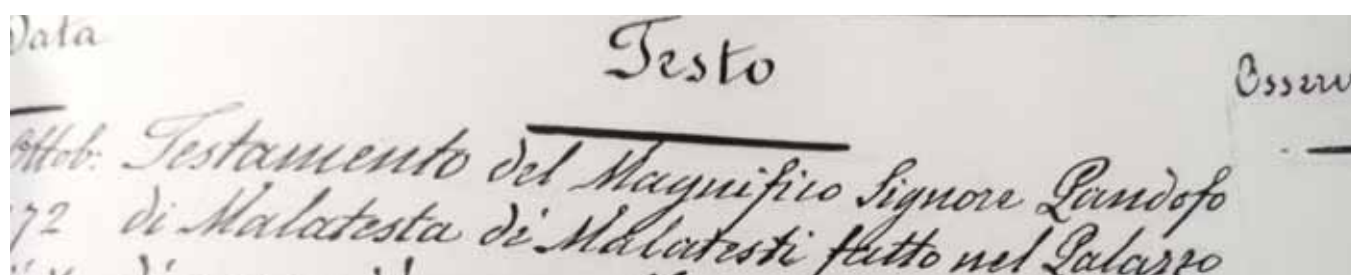 Data
Testo
Osserv
Ottob: Testamento del Magnifico Signore Pandofo
72 di Malatesta di Malatesti fatto nel Palazzo